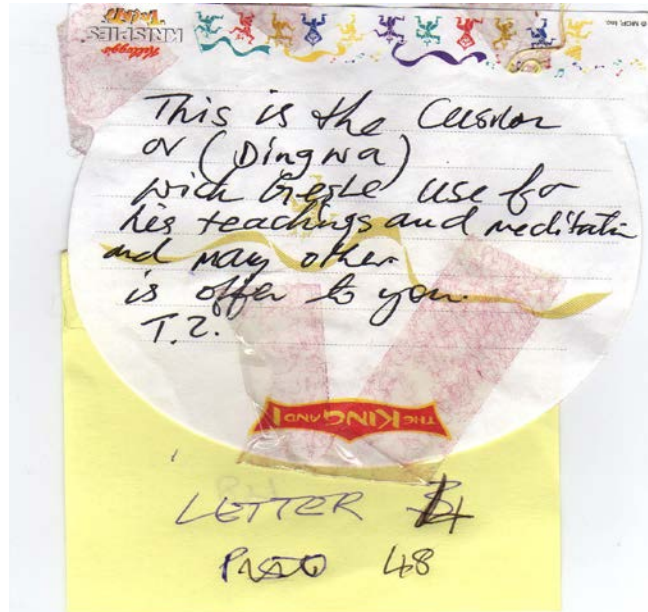 Kellogg's
RICE
KRISPIES
© MCP, Inc.
This is the Cusion
or (Dingwa)
wich Geshe use for
his teachings and meditatin
and many other
is offer to you.
T.Z.
THE KING AND I
LETTER 4
48